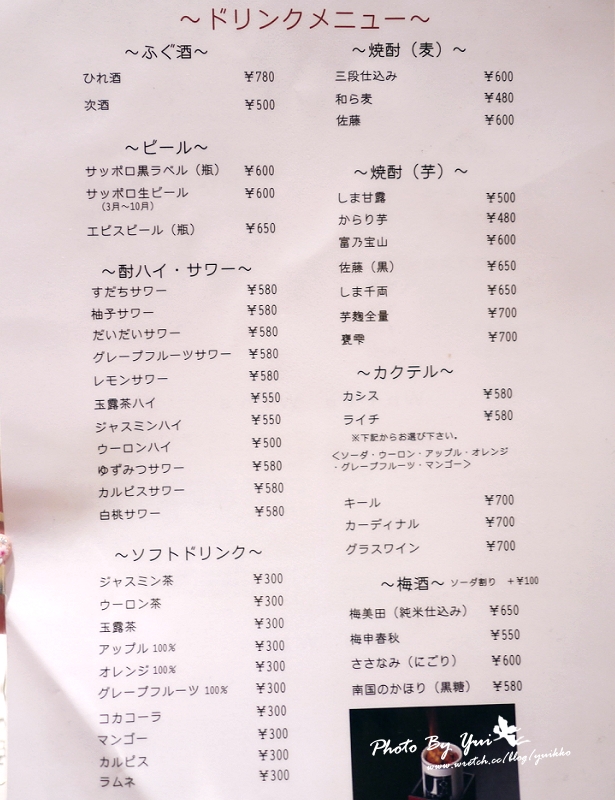 ～ドリンクメニュー～
～ふぐ酒～
ひれ酒 ¥780
次酒 ¥500
～ビール～
サッポロ黒ラベル（瓶） ¥600
サッポロ生ビール ¥600
（3月～10月）
エビスビール（瓶） ¥650
～酎ハイ・サワー～
すだちサワー ¥580
柚子サワー ¥580
だいだいサワー ¥580
グレープフルーツサワー ¥580
レモンサワー ¥580
玉露茶ハイ ¥550
ジャスミンハイ ¥550
ウーロンハイ ¥500
ゆずみつサワー ¥580
カルピスサワー ¥580
白桃サワー ¥580
～ソフトドリンク～
ジャスミン茶 ¥300
ウーロン茶 ¥300
玉露茶 ¥300
アップル 100% ¥300
オレンジ 100% ¥300
グレープフルーツ 100% ¥300
コカコーラ ¥300
マンゴー ¥300
カルピス ¥300
ラムネ ¥300
～焼酎（麦）～
三段仕込み ¥600
和ら麦 ¥480
佐藤 ¥600
～焼酎（芋）～
しま甘露 ¥500
からり芋 ¥480
富乃宝山 ¥600
佐藤（黒） ¥650
しま千両 ¥650
芋麹全量 ¥700
甕雫 ¥700
～カクテル～
カシス ¥580
ライチ ¥580
※下記からお選び下さい。
＜ソーダ・ウーロン・アップル・オレンジ
・グレープフルーツ・マンゴー＞
キール ¥700
カーディナル ¥700
グラスワイン ¥700
～梅酒～ ソーダ割り ＋¥100
梅美田（純米仕込み） ¥650
梅申春秋 ¥550
ささなみ（にごり） ¥600
南国のかほり（黒糖） ¥580
Photo By Yui
www.wretch.cc/blog/yuikko